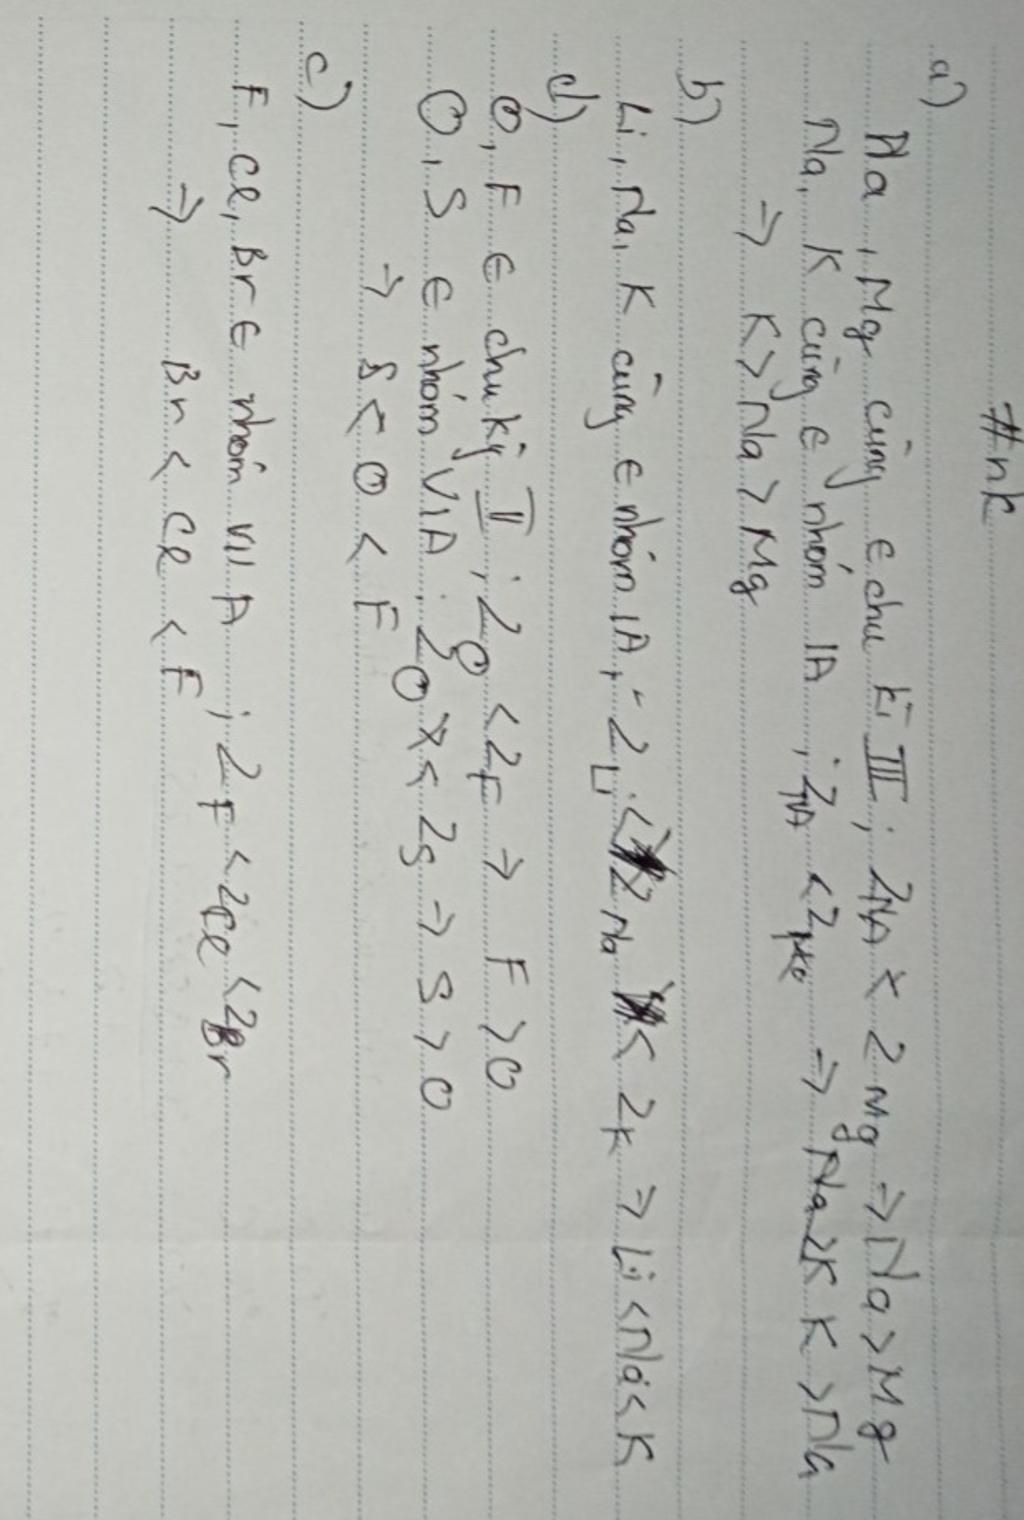 #nk
a)
Na, Mg cùng ∈ chu kì III; ZNA < ZMg ⇒ Na > Mg
Na, K cùng ∈ nhóm IA; ZNA < Z ⇒ Na K K > Na
⇒ K > Na > Mg
b)
Li, Na, K cùng ∈ nhóm IA; ZLi < ZNa < ZK ⇒ Li < Na < K
d)
O, F ∈ chu kỳ II; ZO < ZF ⇒ F > O
O, S ∈ nhóm VIA; ZO < ZS ⇒ S > O
⇒ S < O < F
c)
F, Cl, Br ∈ nhóm VII A; ZF < ZCl < ZBr
⇒ Br < Cl < F